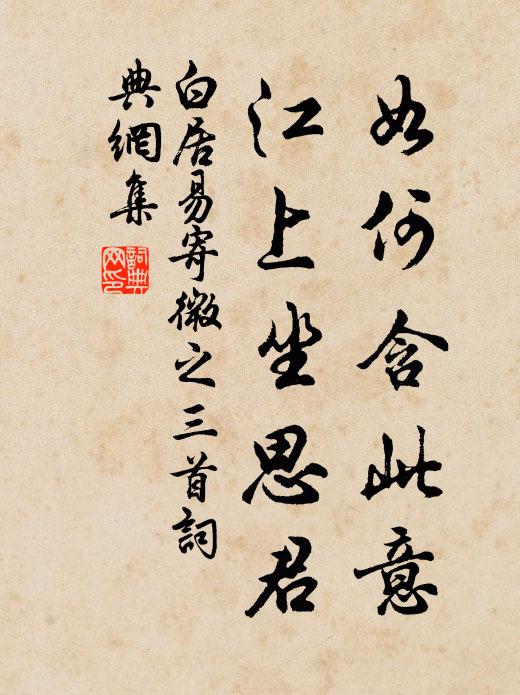 如何含此意
江上坐思君
白居易寄微之三首詞
典網集
詞典
网印